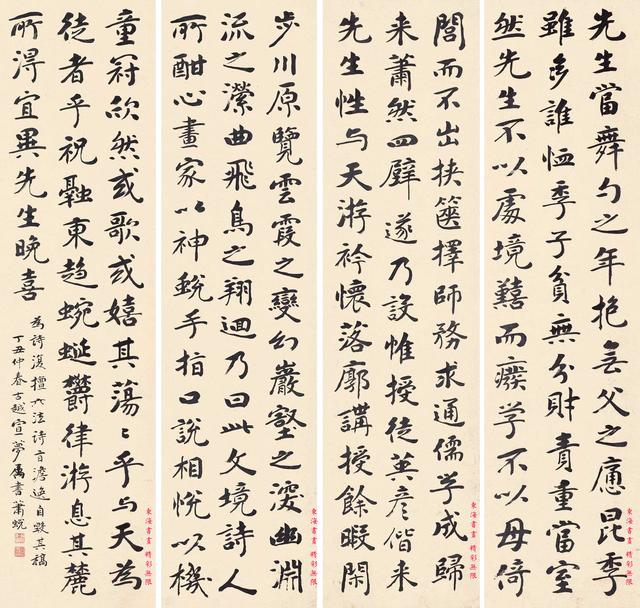 先生當舞勺之年抱無父之慟昆季
雖多誰恤季子貧無分財責重當室
然先生不以處境囏而癈学不以母倚
閭而不出挾篋擇師務求通儒學成歸
来蕭然四壁遂乃設帷授徒英彦偕来
先生性与天游衿懷落廓講授餘暇閑
步川原覽雲霞之變幻巖壑之深幽淵
流之瀠曲飛鳥之翔迴乃曰此文境詩人
所酣心畫家以神蛻手指口說相悅以機
童冠欣然或歌或嬉其蕩〻乎与天為
徒者乎祝融東趨蜿蜒欝律游息其麓
所得宜異先生晚喜
為詩復擅六法詩旨澹遠自毀其稿
丁丑仲春古越宣夢書蕭蛻
東海書畫 精彩無限
東海書畫 精彩無限
東海書畫 精彩無限
東海書畫 精彩無限